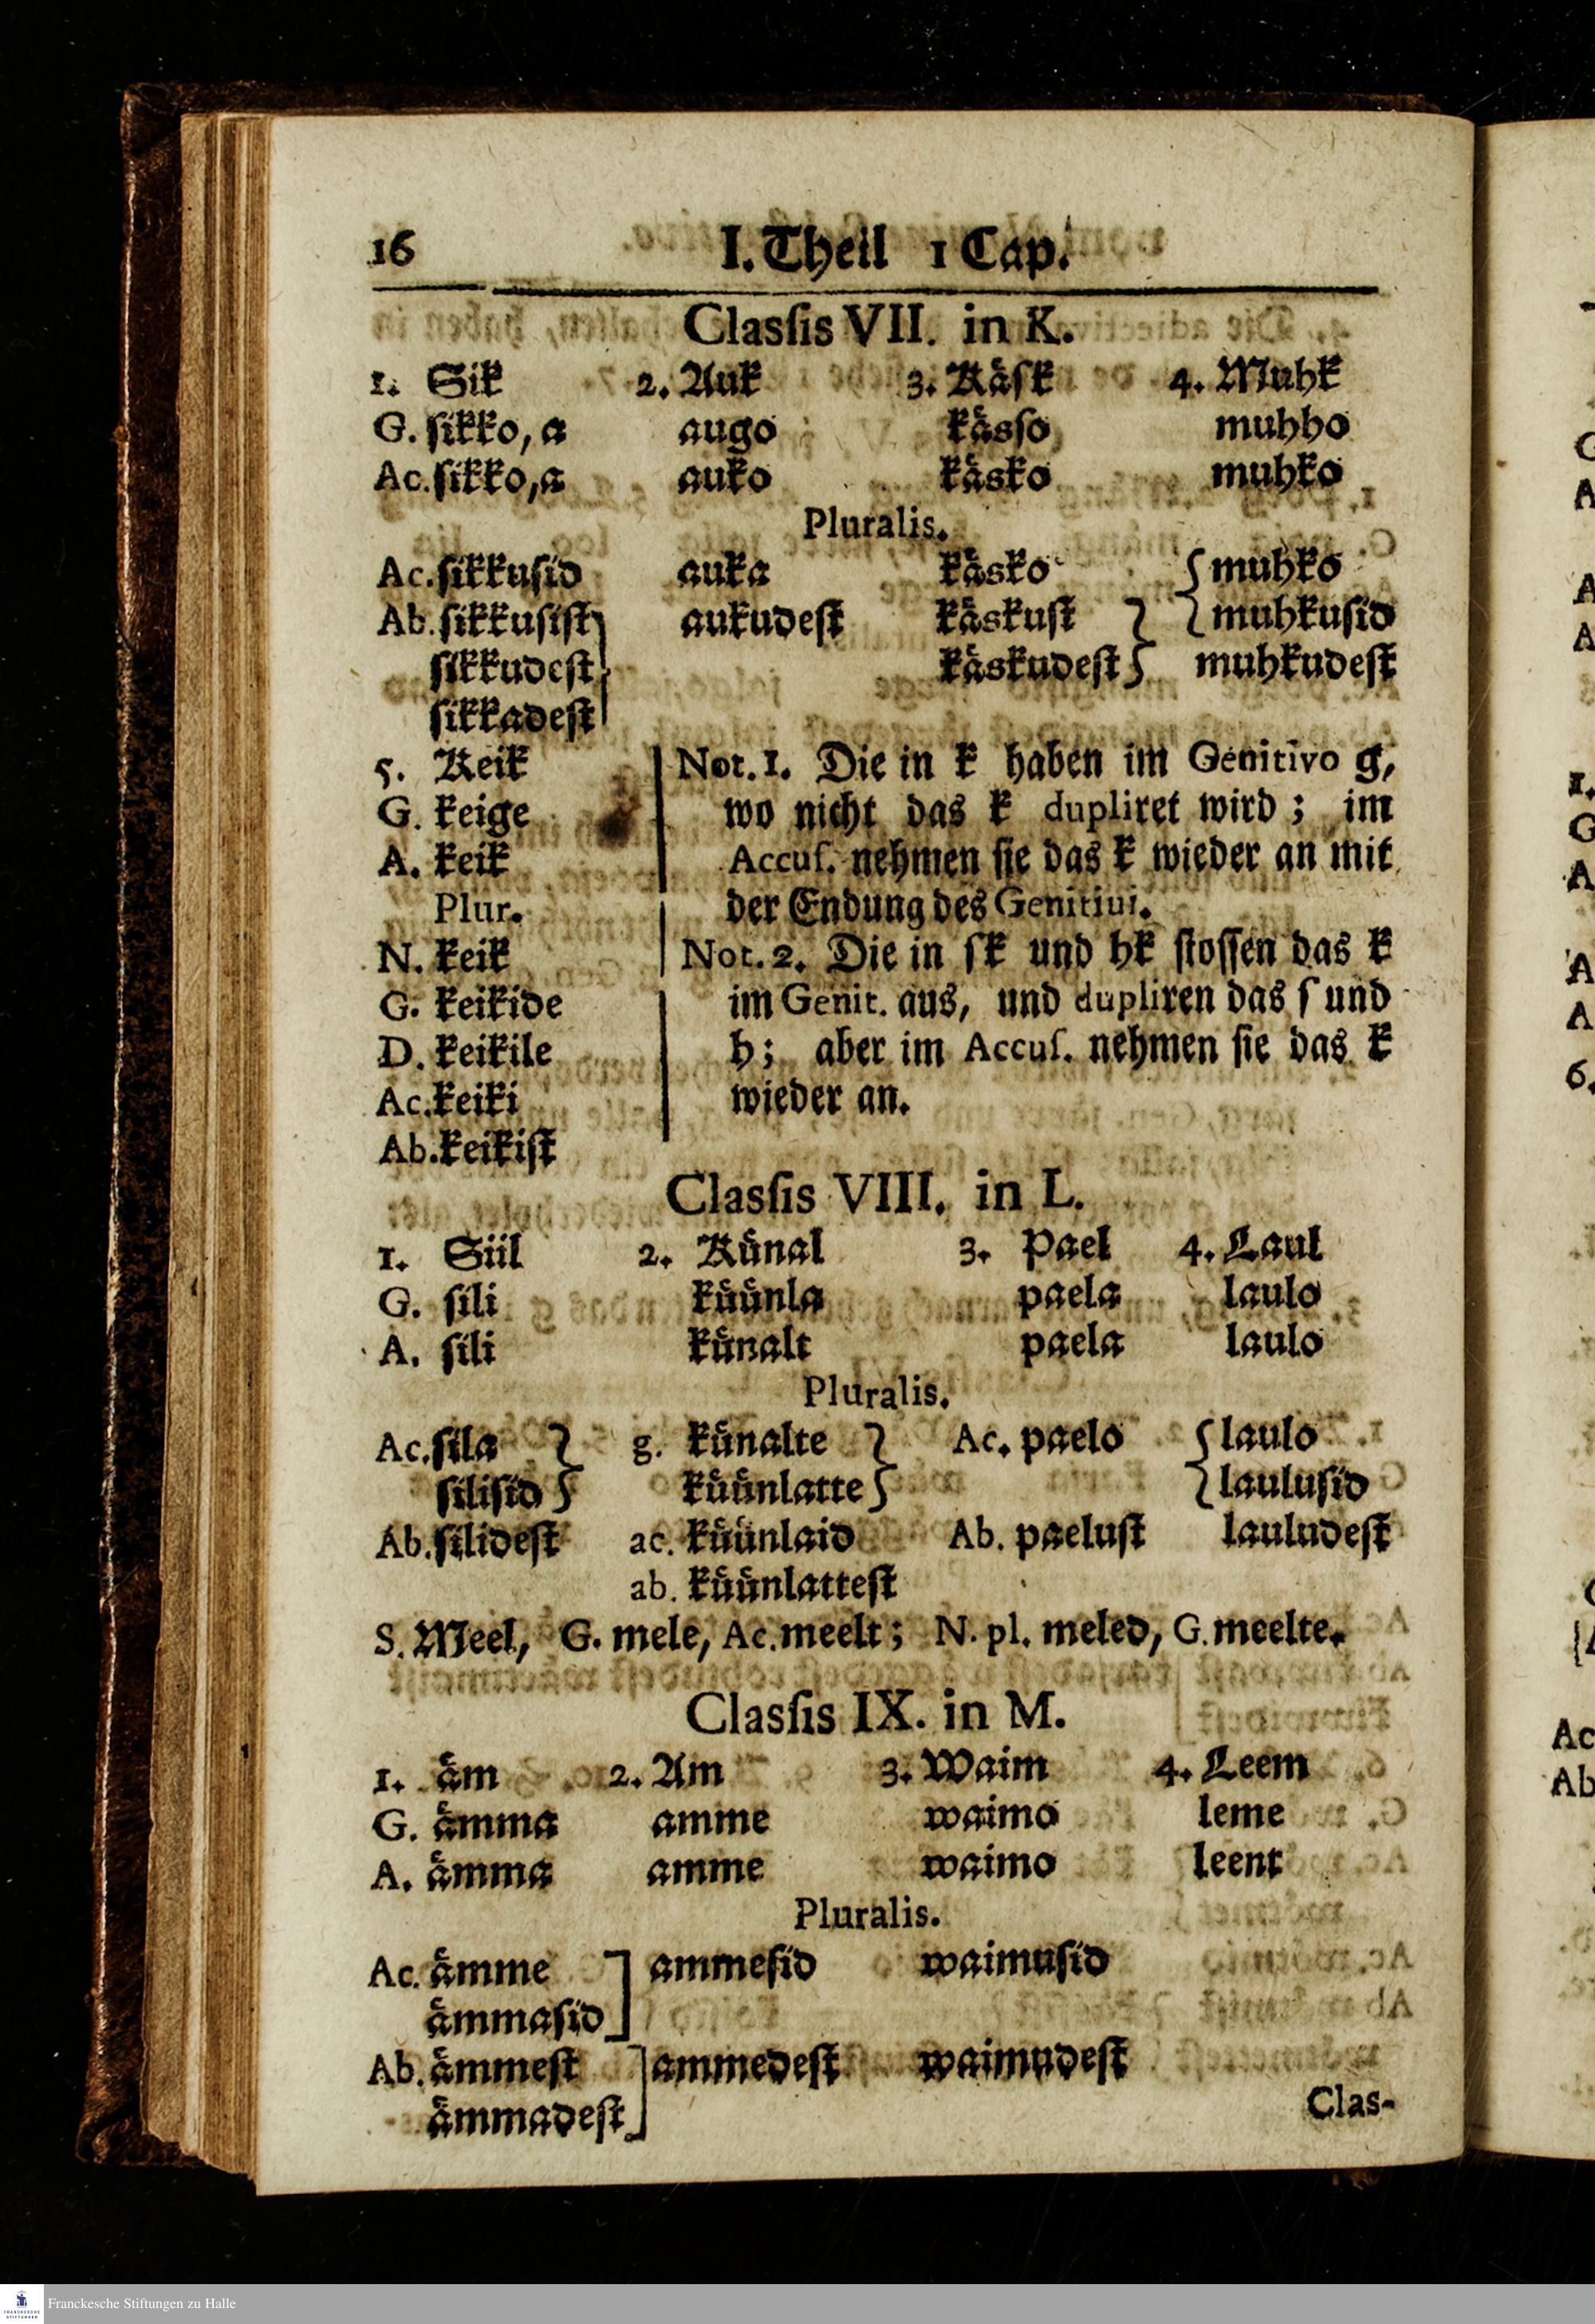 16 I. Theil 1 Cap.
Clasſis VII. in K.
1. Sik 2. Auk 3. Kåſk 4. Muhk
G. ſikko, a augo kåsſo muhho
Ac. ſikko, a auko kåsko muhko
Pluralis.
Ac. ſikkuſid auka kåsko muhko
Ab. ſikkuſiſt aukudeſt kåskuſt muhkuſid
ſikkudeſt kåskudeſt muhkudeſt
ſikkadeſt
5. Keik
G. keige
A. keik
Plur.
N. keik
G. keikide
D. keikile
Ac. keiki
Ab. keikiſt
Not. 1. Die in k haben im Genitivo g,
wo nicht das k dupliret wird; im
Accuſ. nehmen ſie das k wieder an mit
der Endung des Genitiui.
Not. 2. Die in ſk und hk ſtoſſen das k
im Genit. aus, und dupliren das ſ und
h; aber im Accuſ. nehmen ſie das k
wieder an.
Clasſis VIII. in L.
1. Siil 2. Kůnal 3. Pael 4. Laul
G. ſili kůůnla paela laulo
A. ſili kůnalt paela laulo
Pluralis.
Ac. ſila g. kůnalte Ac. paelo laulo
ſiliſid kůůnlatte lauluſid
Ab. ſilideſt ac. kůůnlaid Ab. paeluſt lauludeſt
ab. kůůnlatteſt
S. Meel, G. mele, Ac. meelt; N. pl. meled, G. meelte.
Clasſis IX. in M.
1. åm 2. Am 3. Waim 4. Leem
G. åmma amme waimo leme
A. åmma amme waimo leent
Pluralis.
Ac. åmme ammeſid waimuſid
åmmaſid
Ab. åmmeſt ammedeſt waimudeſt
åmmadeſt
Clas-
Franckesche Stiftungen zu Halle